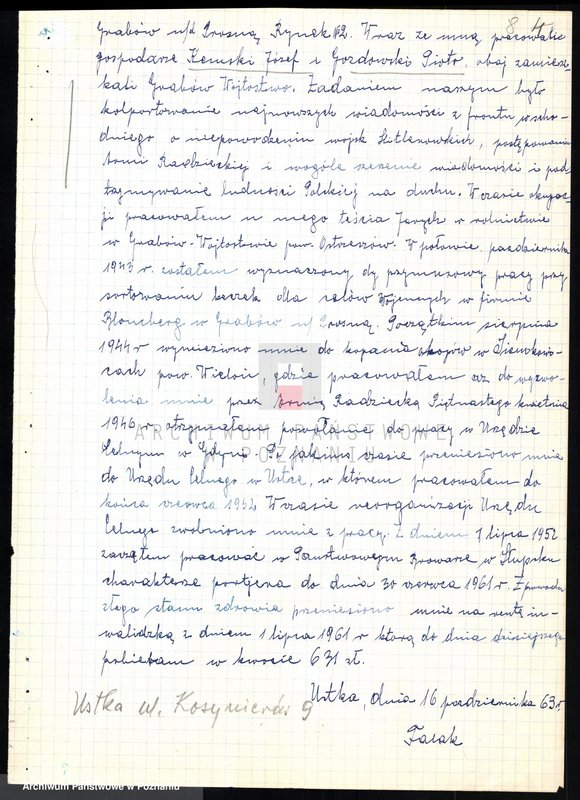 8
Grabów n/d Prosną Rynek №2. Wraz ze mną pracowali
gospodarze Kemski Józef i Gozdowski Piotr, obaj zamiesz-
kali Grabów Wójtostwo. Zadaniem naszym było
kolportowanie najnowszych wiadomości z frontu wscho-
dniego o niepowodzeniu wojsk Hitlerowskich, postępowaniu
Armii Radzieckiej i wogóle szerzenie wiadomości i pod-
trzymywanie ludności Polskiej na duchu. W czasie okupac-
ji pracowałem u mego teścia w rolnictwie
w Grabów-Wójtostwie pow. Ostrzeszów. W połowie października
1943 r. zostałem wyznaczony do przymusowej pracy przy
sortowaniu beczek dla celów wojennych w firmie
Blomberg w Grabów n/ Prosną. Początkiem sierpnia
1944 r wywieziono mnie do kopania okopów w
cach pow. Wieluń, gdzie pracowałem aż do wyzwo-
lenia mnie przez Armię Radziecką Piętnastego kwietnia
1946 r. otrzymałem powołanie do pracy w Urzędzie
Celnym w Gdynia. Po jakimś czasie przeniesiono mnie
do Urzędu Celnego w Ustce, w którem pracowałem do
końca czerwca 1952 W czasie reorganizacji Urzędu
Celnego zwolniono mnie z pracy. Z dniem 1 lipca 1952
zacząłem pracować w Państwowym Browarze w Słupsku
charakterze portjera do dnia 30 czerwca 1961 r. Z powodu
złego stanu zdrowia przeniesiono mnie na rentę in-
walidzką z dniem 1 lipca 1961 r którą do dnia dzisiejszego
pobieram w kwocie 631 zł.
Ustka, dnia 16 października 63 r.
Ustka ul. Kosynierów 9
ARCHIWUM PAŃSTWOWE
W POZNANIU
Archiwum Państwowe w Poznaniu